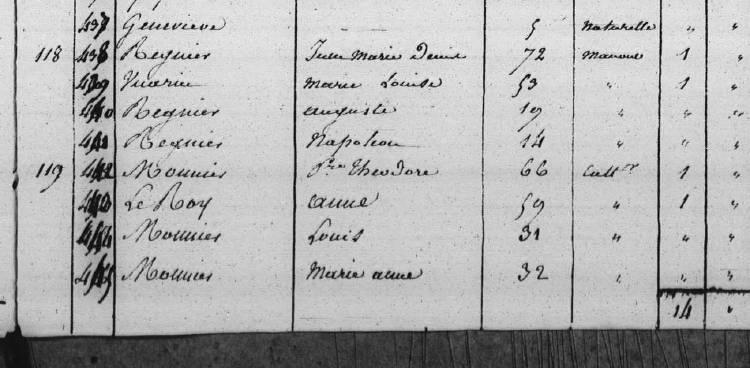 437 Genevieve 5 naturelle " "
118 438 Regnier Jean Marie Denis 72 Manouv 1 "
439 Vuarin Marie Louise 53 " 1 "
440 Regnier auguste 19 " " "
441 Regnier Napoleon 14 " " "
119 442 Monnier Pre Theodore 66 Cultr 1 "
443 Le Roy anne 59 " 1 "
444 Monnier Louis 31 " " "
445 Monnier Marie anne 32 " " "
14 "